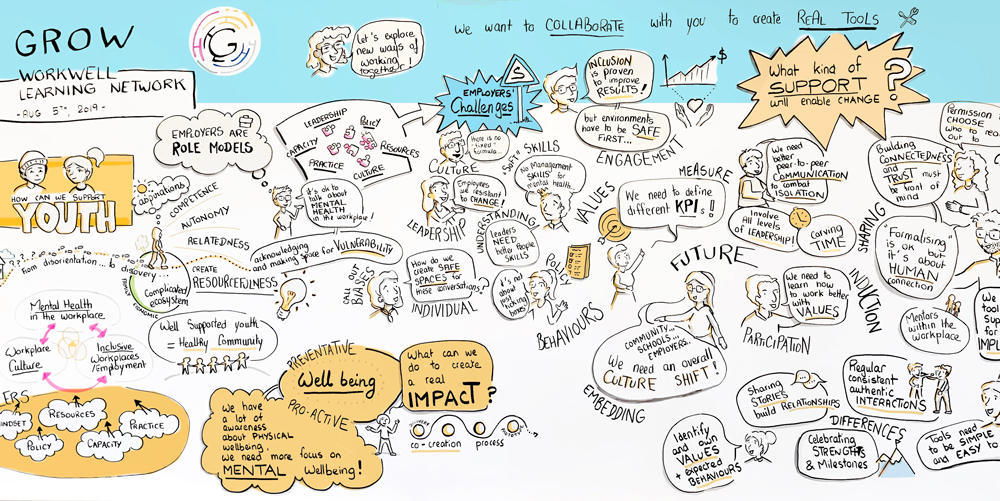 GROW
WORKWELL
LEARNING NETWORK
-AUG 5TH, 2019-
HIGHJ
Let's explore
new ways of
working
together!
We want to COLLABORATE with you to create REAL TOOLS
EMPLOYERS ARE
ROLE MODELS
HOW CAN WE SUPPORT
YOUTH
aspirations
COMPETENCE
AUTONOMY
RELATEDNESS
CREATE
RESOURCEFULNESS
From disorientation... to discovery
Complicated
ecosystem
ECONOMIC
Mental Health
in the workplace
Workplace
Culture
Inclusive
Workplaces
/Employment
Well Supported youth
= Healthy Community
ERS
MINDSET
RESOURCES
PRACTICE
POLICY
CAPACITY
LEADERSHIP
POLICY
CAPACITY
RESOURCES
PRACTICE
CULTURE
it's ok to
talk about
MENTAL
HEALTH
in the workplace!
acknowledging
and making space for VULNERABILITY
EMPLOYERS'
Challenges
$
There is no
"fixed"
formula...
CULTURE
SOFT SKILLS
No Management
SKILLS for
mental health
Employees
are resistant
to CHANGE!
LEADERSHIP
UNDERSTANDING
Leaders
NEED
better People
SKILLS
CALL OUT
BIASES
How do we
create SAFE
SPACES for
these conversations?
INDIVIDUAL
it's not
about just
ticking
boxes
POLICY
BEHAVIOURS
VALUES
INCLUSION
is proven
to improve
RESULTS!
but environments
have to be SAFE
FIRST...
ENGAGEMENT
$
MEASURE
We need to define
different KPIs!!
FUTURE
COMMUNITY...
SCHOOLS...
EMPLOYERS.
We need an overall
CULTURE SHIFT!
EMBEDDING
What kind of
SUPPORT
will enable CHANGE
?
We need
better
peer-to-peer
COMMUNICATION
to combat
ISOLATION
Involve
All levels
of LEADERSHIP!
Carving
TIME
We need to
learn how
to work better
with
VALUES
PARTICIPATION
INDUCTION
SHARING
Permission to
CHOOSE
who to reach
out to
Building
CONNECTEDNESS
and TRUST must
be front of
mind
"Formalising"
is ok but
it's about
HUMAN
connection
Mentors
within the
workplace
Regular
consistent
authentic
INTERACTIONS
Sharing
STORIES
build RELATIONSHIPS
DIFFERENCES
Celebrating
STRENGTHS
& Milestones
Identify
and own
VALUES
+ expected
BEHAVIOURS
Tools need
to be SIMPLE
and EASY to
PREVENTATIVE
Well being
PRO-ACTIVE
We have
a lot of
awareness
about PHYSICAL
wellbeing,
we need more focus on
MENTAL wellbeing!
What can we
do to create
a real
IMPACT?
co - creation process